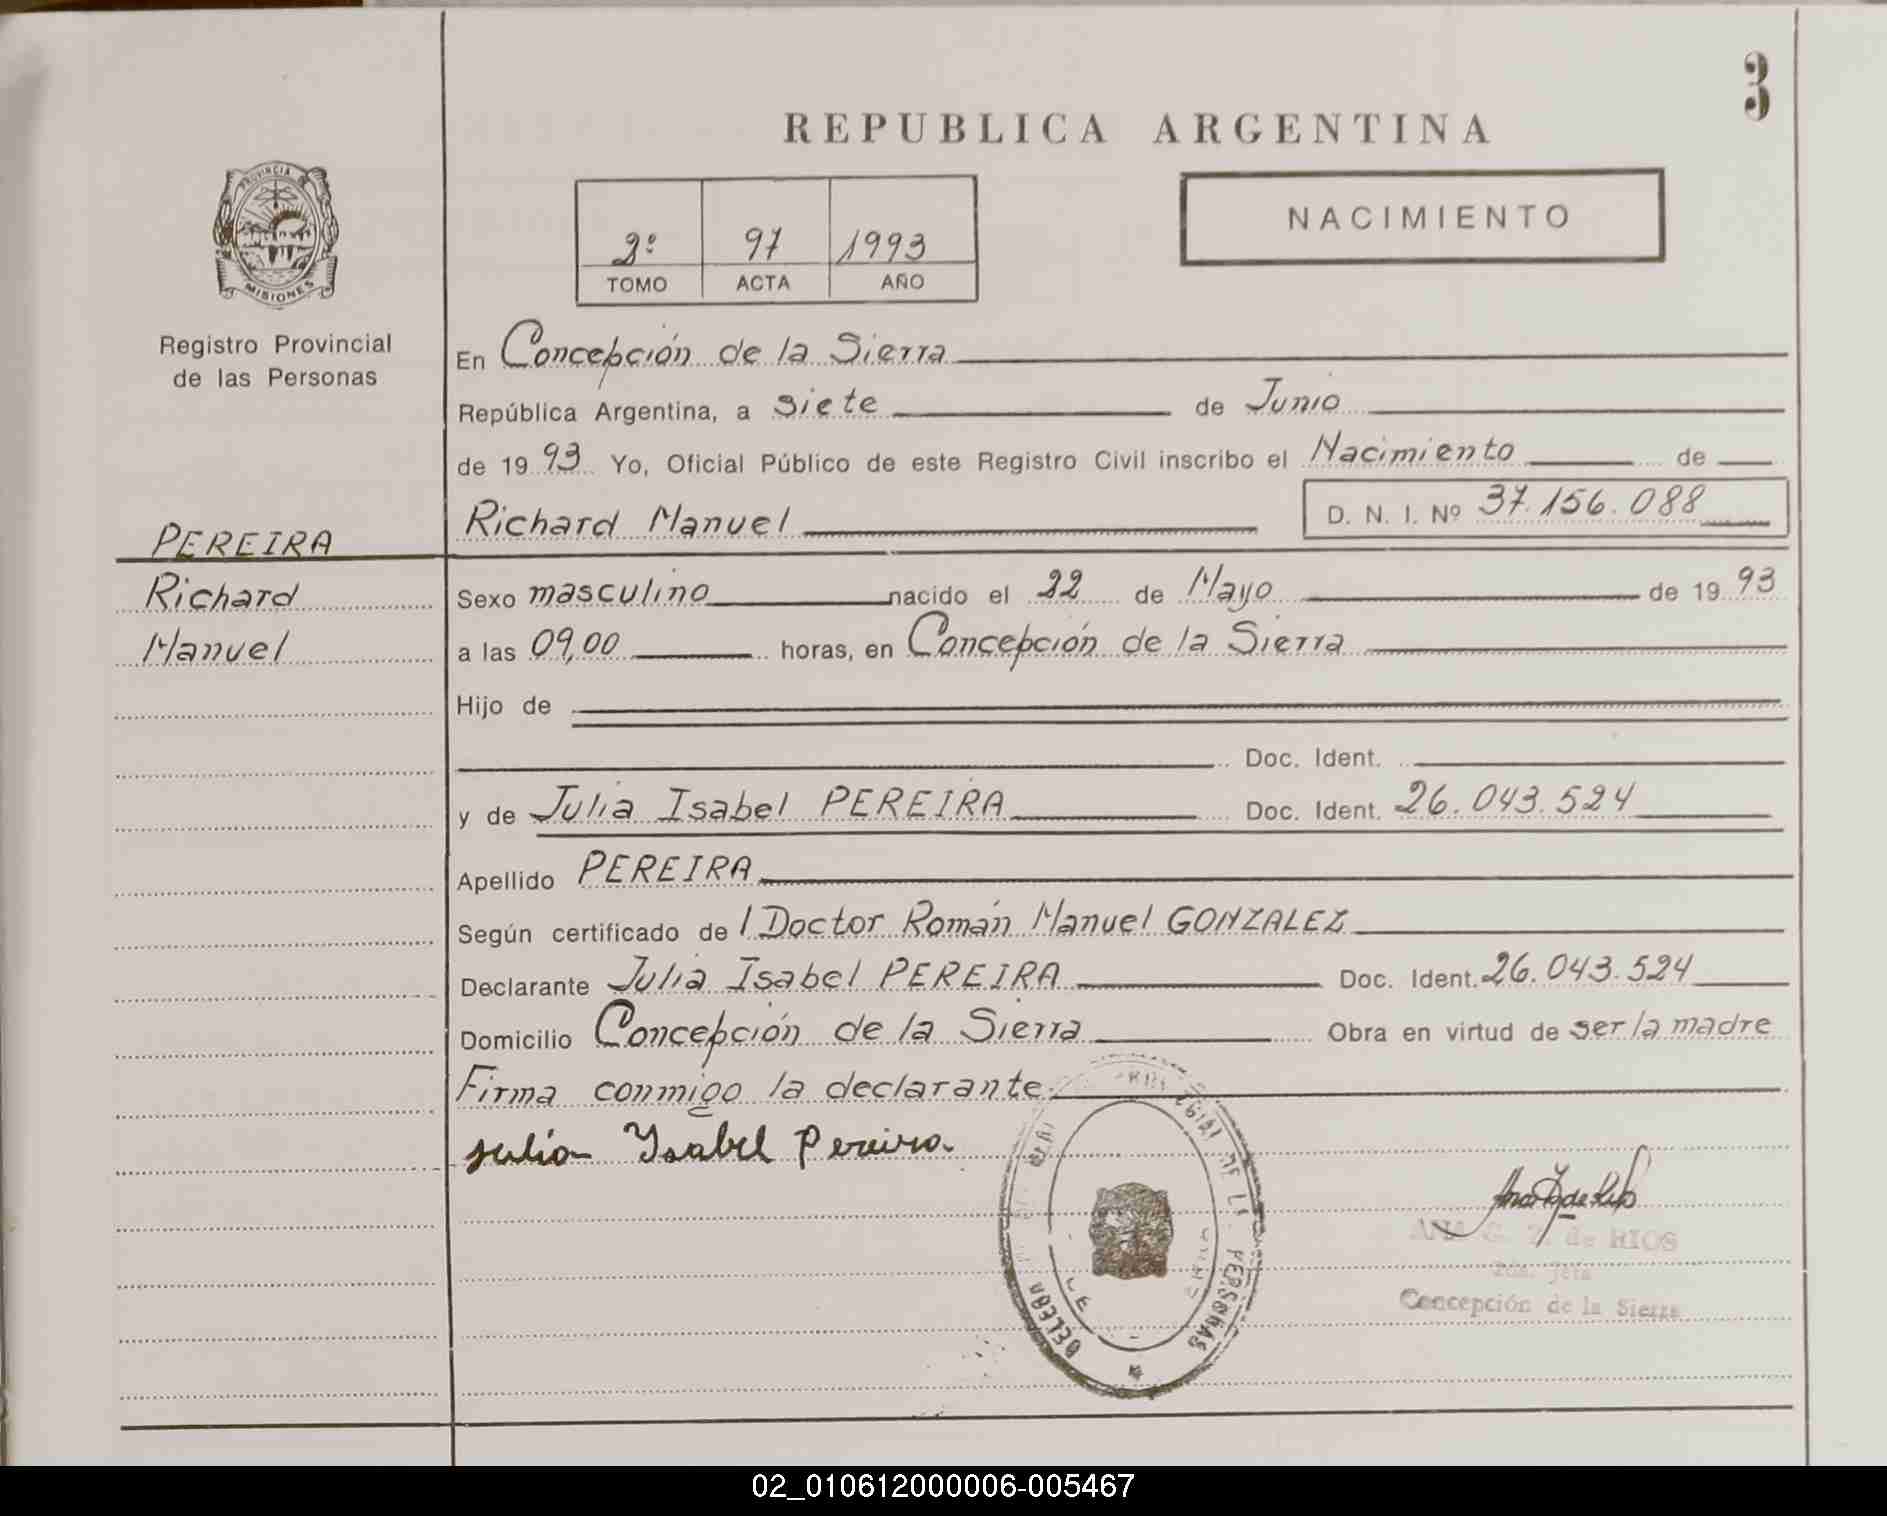 3
REPUBLICA ARGENTINA
PROVINCIA
MISIONES
Registro Provincial
de las Personas
2º 97 1993
TOMO ACTA AÑO
NACIMIENTO
En Concepción de la Sierra
República Argentina, a siete de Junio
de 19 93 Yo, Oficial Público de este Registro Civil inscribo el Nacimiento de
Richard Manuel D. N. I. Nº 37.156.088
PEREIRA
Richard
Manuel
Sexo masculino nacido el 22 de Mayo de 19 93
a las 09,00 horas, en Concepción de la Sierra
Hijo de
Doc. Ident.
y de Julia Isabel PEREIRA Doc. Ident. 26.043.524
Apellido PEREIRA
Según certificado de l Doctor Román Manuel GONZALEZ
Declarante Julia Isabel PEREIRA Doc. Ident. 26.043.524
Domicilio Concepción de la Sierra Obra en virtud de ser la madre
Firma conmigo la declarante
Julia Ysabel Pereira
DE LA PERSONAS
ANA C. Z. de RIOS
2da. Jefa
Concepción de la Sierra
02_010612000006-005467